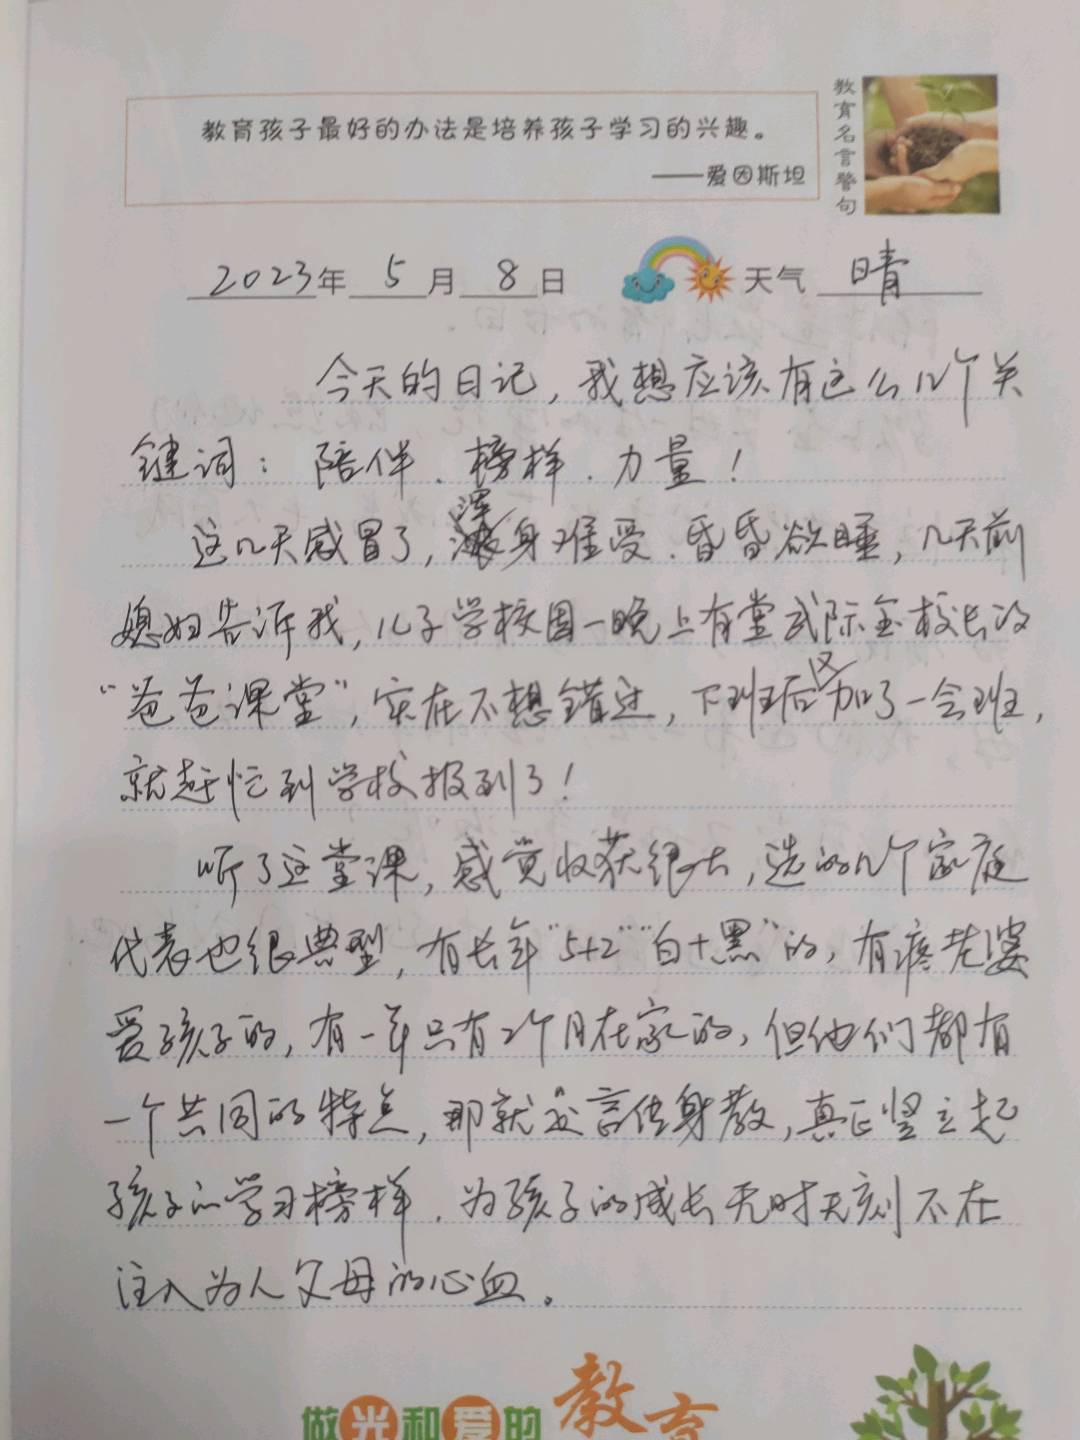 教育孩子最好的办法是培养孩子学习的兴趣。
——爱因斯坦
教育名言警句
2023年 5月 8日 天气 晴
今天的日记，我想应该有这么几个关
键词：陪伴、榜样、力量！
这几天感冒了，浑身难受、昏昏欲睡，几天前
媳妇告诉我，儿子学校周一晚上有堂武际金校长的
“爸爸课堂”，实在不想错过，下班后又加了一会班，
就赶忙到学校报到了！
听了这堂课，感觉收获很大，选的几个家庭
代表也很典型，有长年“5+2”“白+黑”的，有疼老婆
爱孩子的，有一年只有2个月在家的，但他们都有
一个共同的特点，那就是言传身教，真正竖立起
孩子的学习榜样，为孩子的成长无时无刻不在
注入为人父母的心血。
做光和爱的教育